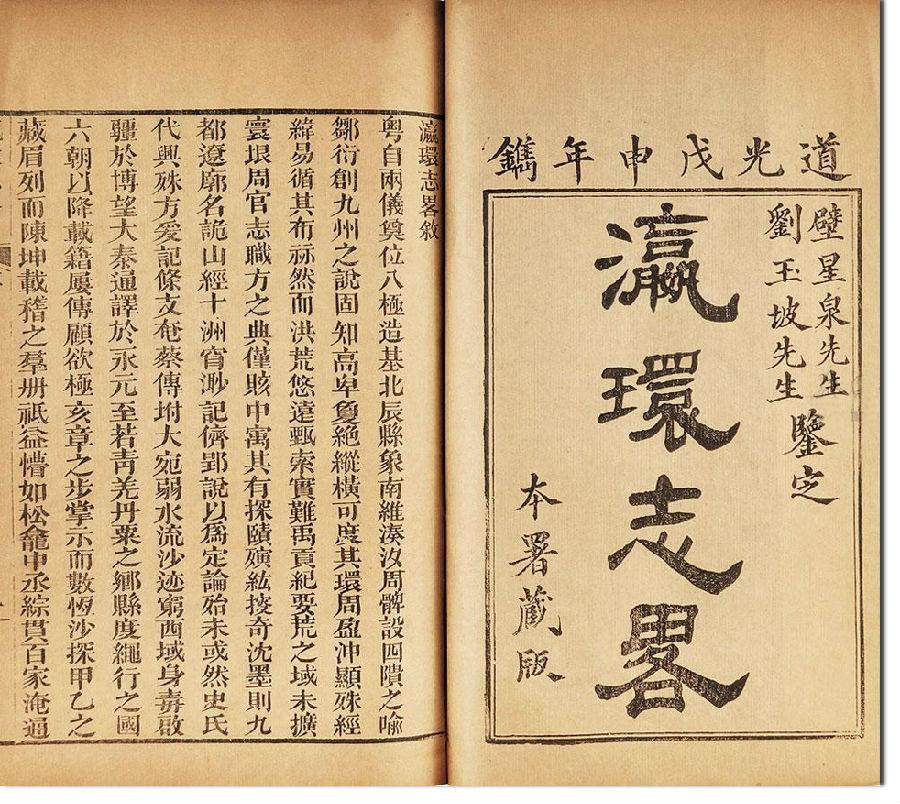 道光戊申年鐫
壁星泉先生
劉玉坡先生
鑒定
瀛環志畧
本署藏版
瀛環志畧敘
粵自兩儀奠位八極造基北辰縣象南維湊汝周髀設四隤之喻
鄒衍創九州之說固知高卑敻絶縱橫可度其環周盈沖顯殊經
緯易循其布祘然而洪荒悠遠甄索實難禹貢紀要荒之域未擴
寰垠周官志職方之典僅賅中寓其有探賾殫紘挍奇沈墨則九
都遼廓名詭山經十洲窅渺記儕郢說以爲定論殆未或然史氏
代興殊方爰記條支奄蔡傳坿大宛弱水流沙迹窮西域身毒啟
疆於博望大秦通譯於永元至若靑羌丹粟之鄉縣度繩行之國
六朝以降載籍屢傳顧欲極亥章之步掌示而數恆沙探甲乙之
藏眉列而陳坤載稽之羣册祇益懵如松龕中丞綜貫百家淹通